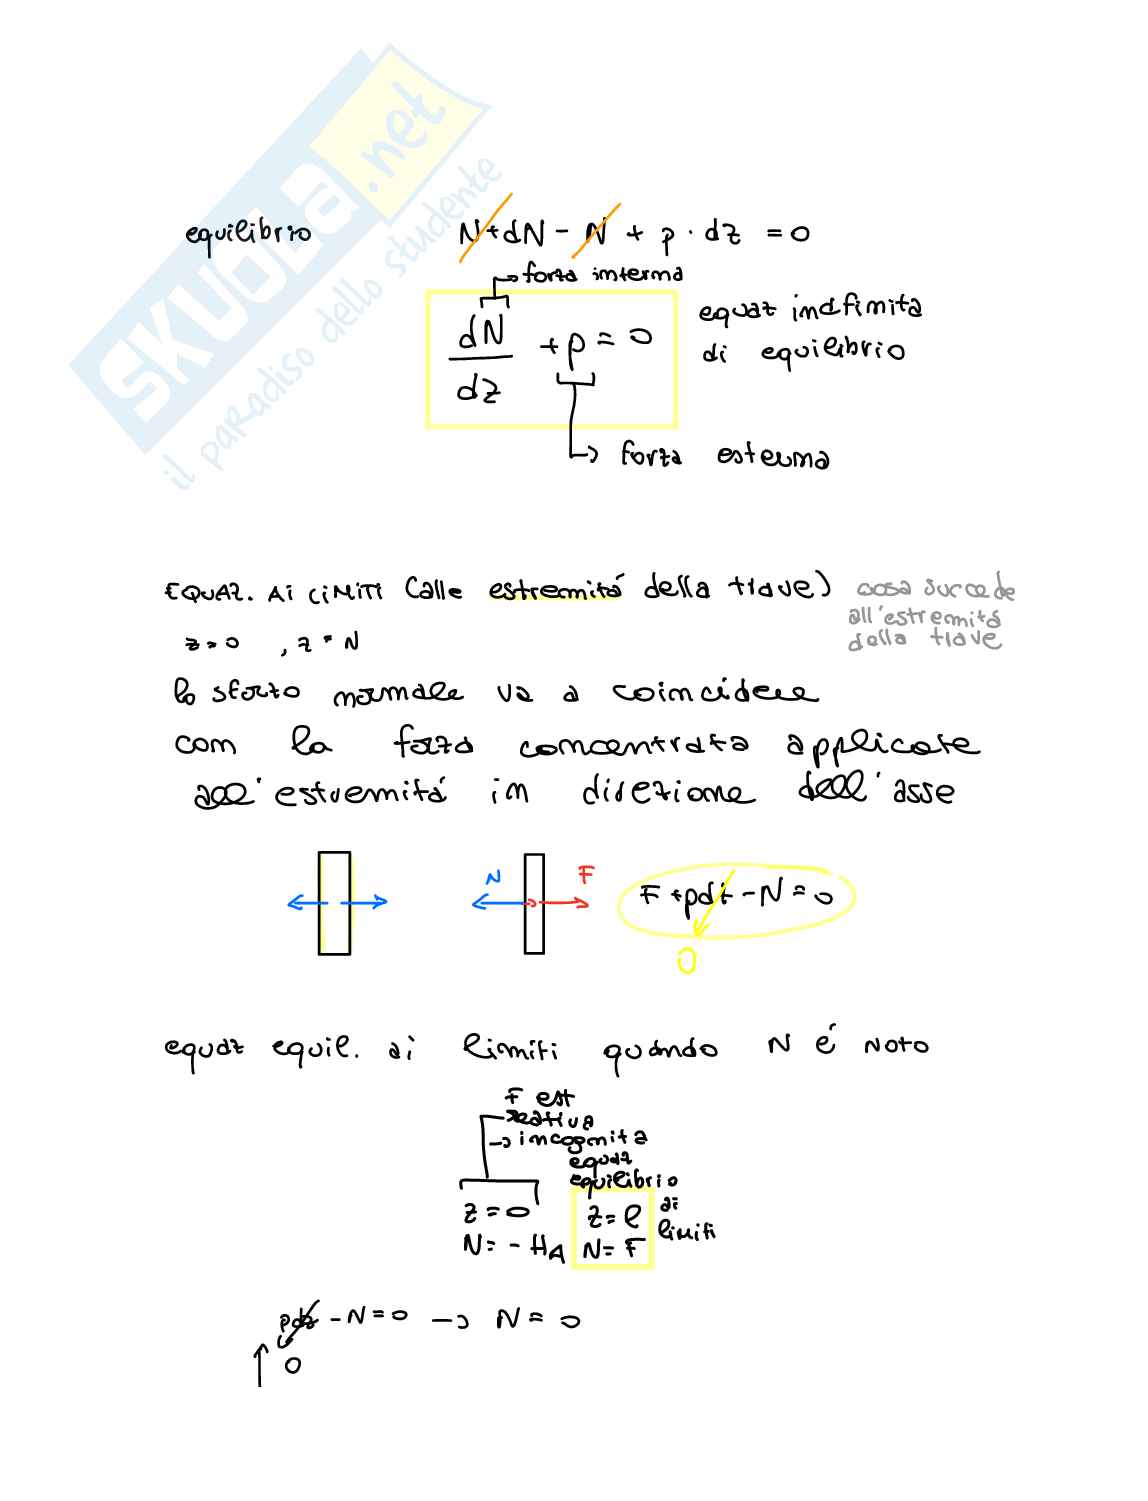 SKUOLA.net
il paradiso dello studente
equilibrio N+dN-N+p·dz=0
forza interna
dN/dz +p=0
equaz indefinita
di equilibrio
forza esterna
EQUAZ. AI LIMITI (alle estremitá della trave) cosa succede
all'estremitá
della trave
z=0 , z=N
lo sforzo normale va a coincidere
com la forza concentrata applicate
all'estremitá in direzione dell'asse
N F F+pdz-N=0
0
equaz equil. ai limiti quando N é NOTO
F est
reattiva
→ incognita
equaz
equilibrio
ai
limiti
z=0 z=l
N=-HA N=F
pdz-N=0 → N=0
0